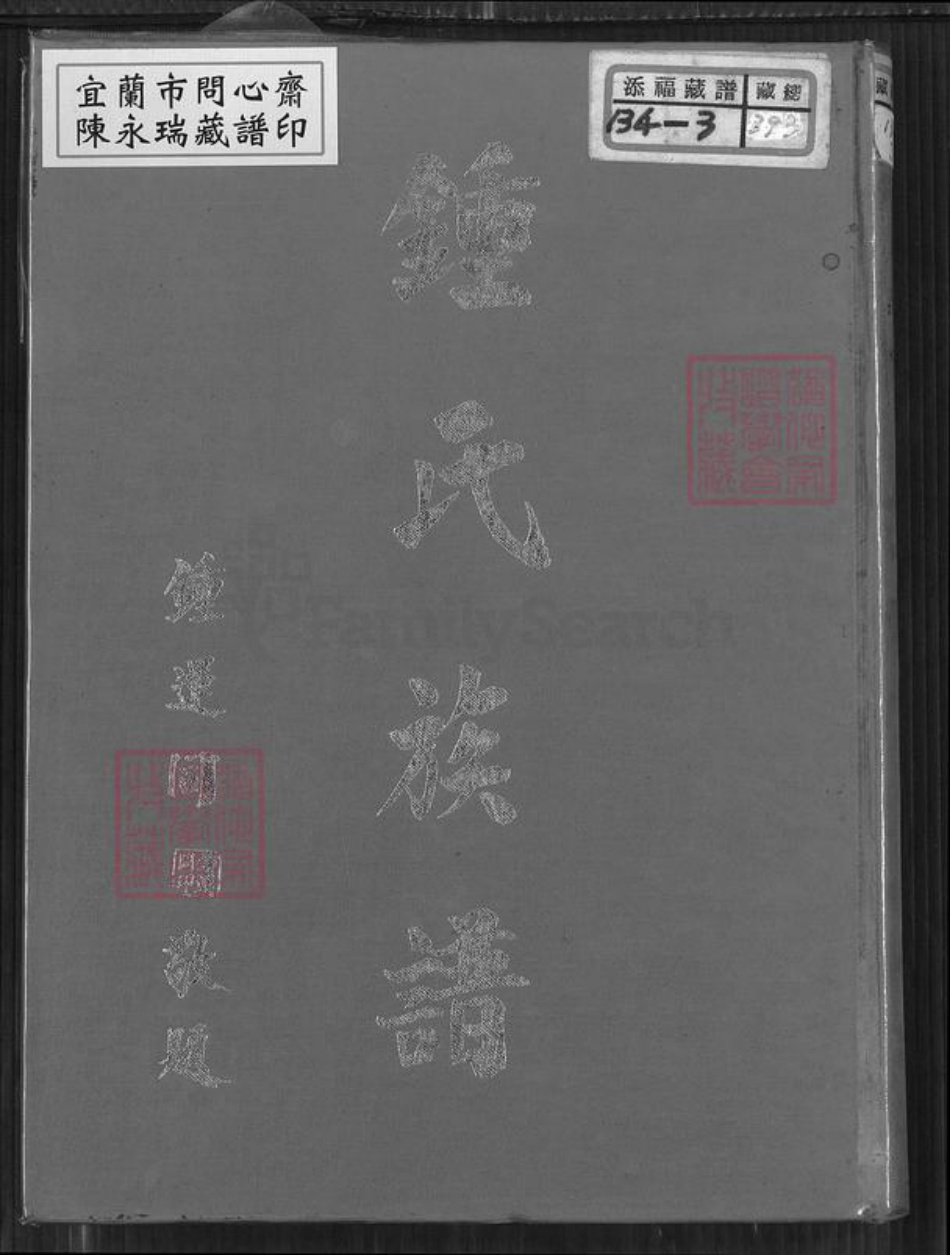 宜蘭市問心齋
陳永瑞藏譜印
添福藏譜
藏總
134-3
393
鍾氏族譜
鍾運同敬題
FamilySearch